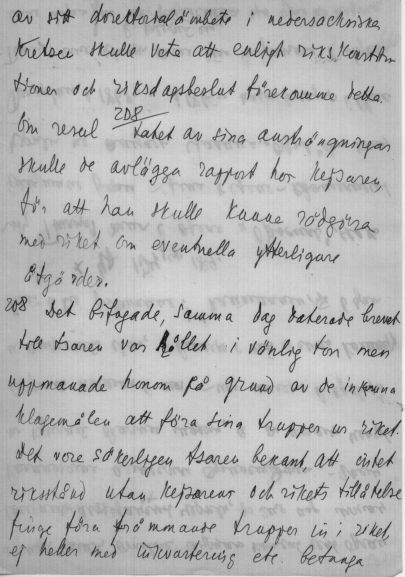 av sitt direktorialämbete i nedersachsiska
Kretsen skulle veta att enligt rikskonstitu
tioner och riksdagsbeslut förekomme detta.
Om resul 208 tatet av sina ansträngningar
skulle de avlägga rapport hos kejsaren,
för att han skulle kunna rådgöra
med riket om eventuella ytterligare
åtgärder.
208 Det bifogade, samma dag daterade brevet
till tsaren var hållet i vänlig ton men
uppmanade honom på grund av de inkomna
klagomålen att föra sina trupper ur riket.
Det vore säkerligen tsaren bekant, att intet
riksstånd utan kejsarens och rikets tillåtelse
finge föra främmande trupper in i riket
ej heller med inkvartering etc. betunga